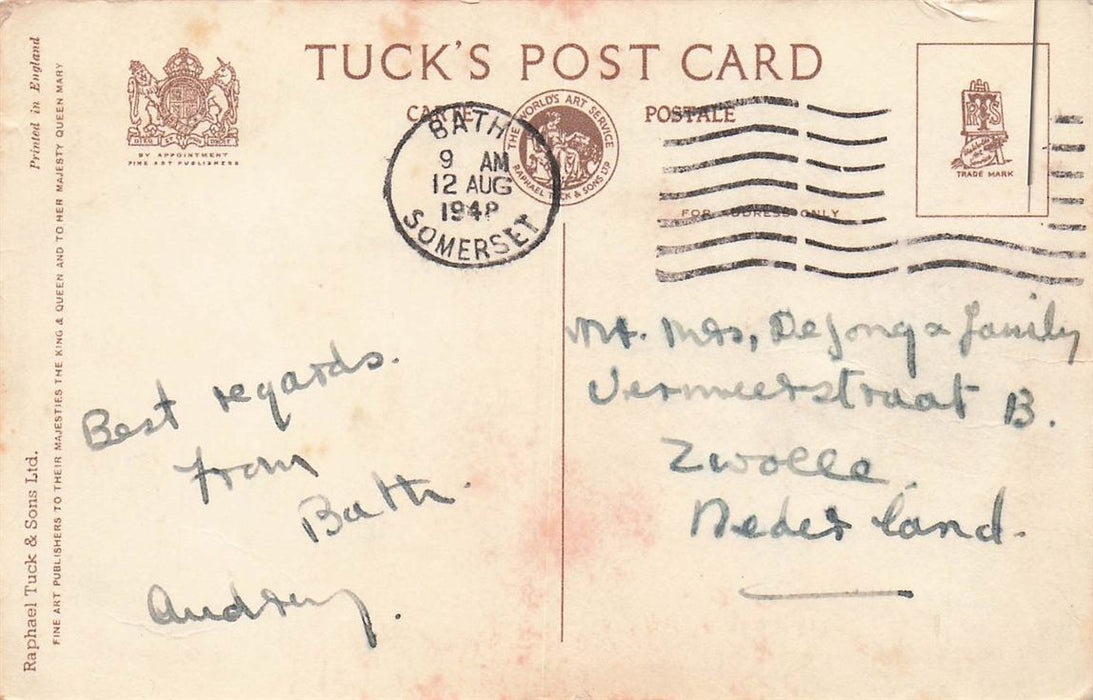 TUCK'S POST CARD
CARTE POSTALE
BY APPOINTMENT
FINE ART PUBLISHERS
THE WORLD'S ART SERVICE
RAPHAEL TUCK & SONS LTD
FOR ADDRESS ONLY
TRADE MARK
BATH
9 AM
12 AUG
1948
SOMERSET
Printed in England
Raphael Tuck & Sons Ltd.
FINE ART PUBLISHERS TO THEIR MAJESTIES THE KING & QUEEN AND TO HER MAJESTY QUEEN MARY
Best regards.
from
Bath.
Audrey.
Mr. Mrs, De Jong & family
Vermeerstraat B.
Zwolle.
Nederland.